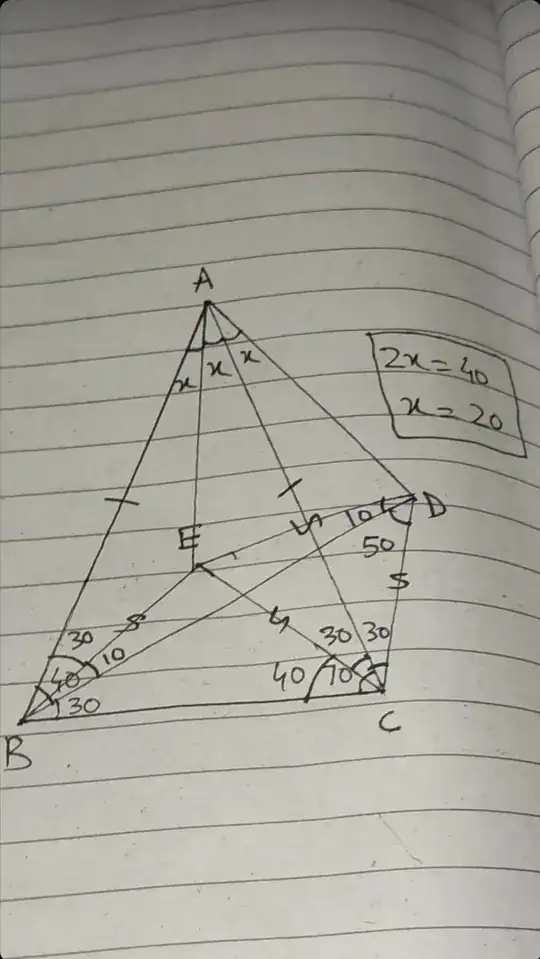 A
x x x
2x = 40
x = 20
E
10
D
50
30
10
40
30
30
30
40
70
B
C